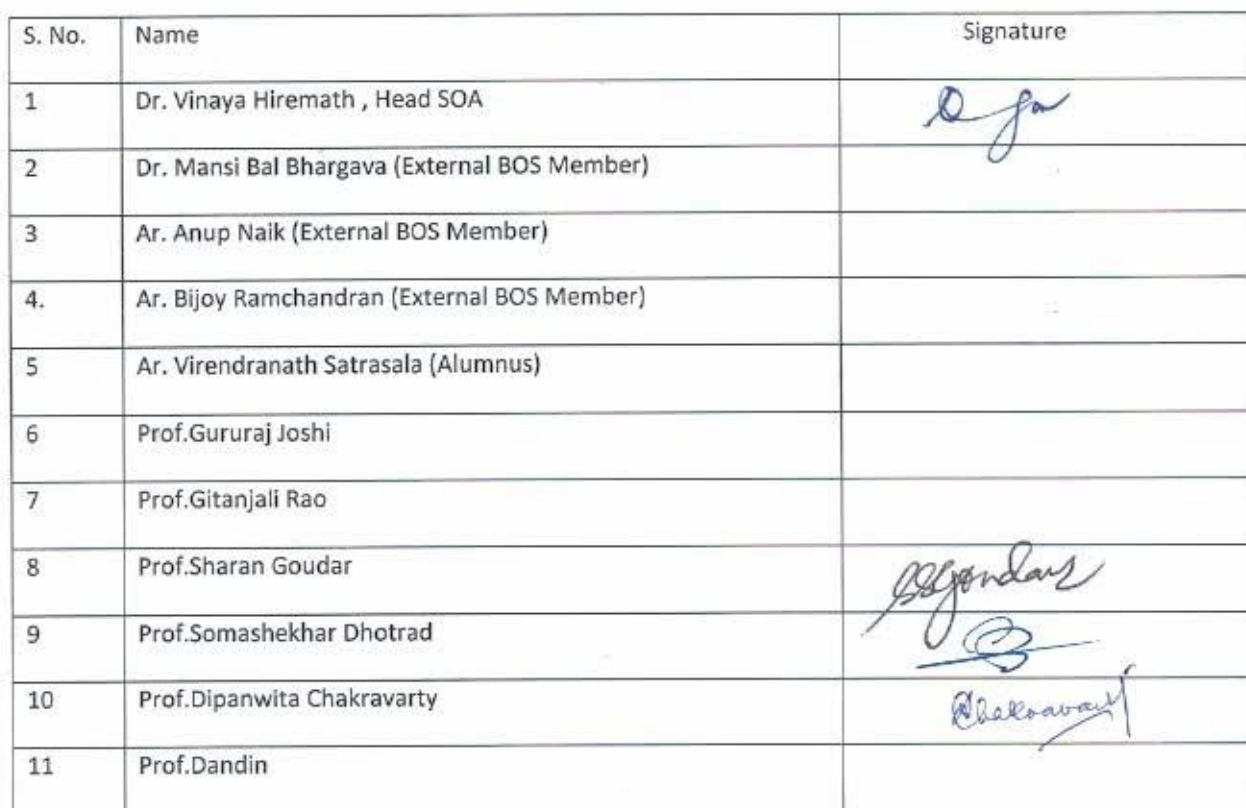 S. No. Name Signature
1 Dr. Vinaya Hiremath , Head SOA
2 Dr. Mansi Bal Bhargava (External BOS Member)
3 Ar. Anup Naik (External BOS Member)
4. Ar. Bijoy Ramchandran (External BOS Member)
5 Ar. Virendranath Satrasala (Alumnus)
6 Prof.Gururaj Joshi
7 Prof.Gitanjali Rao
8 Prof.Sharan Goudar
9 Prof.Somashekhar Dhotrad
10 Prof.Dipanwita Chakravarty
11 Prof.Dandin